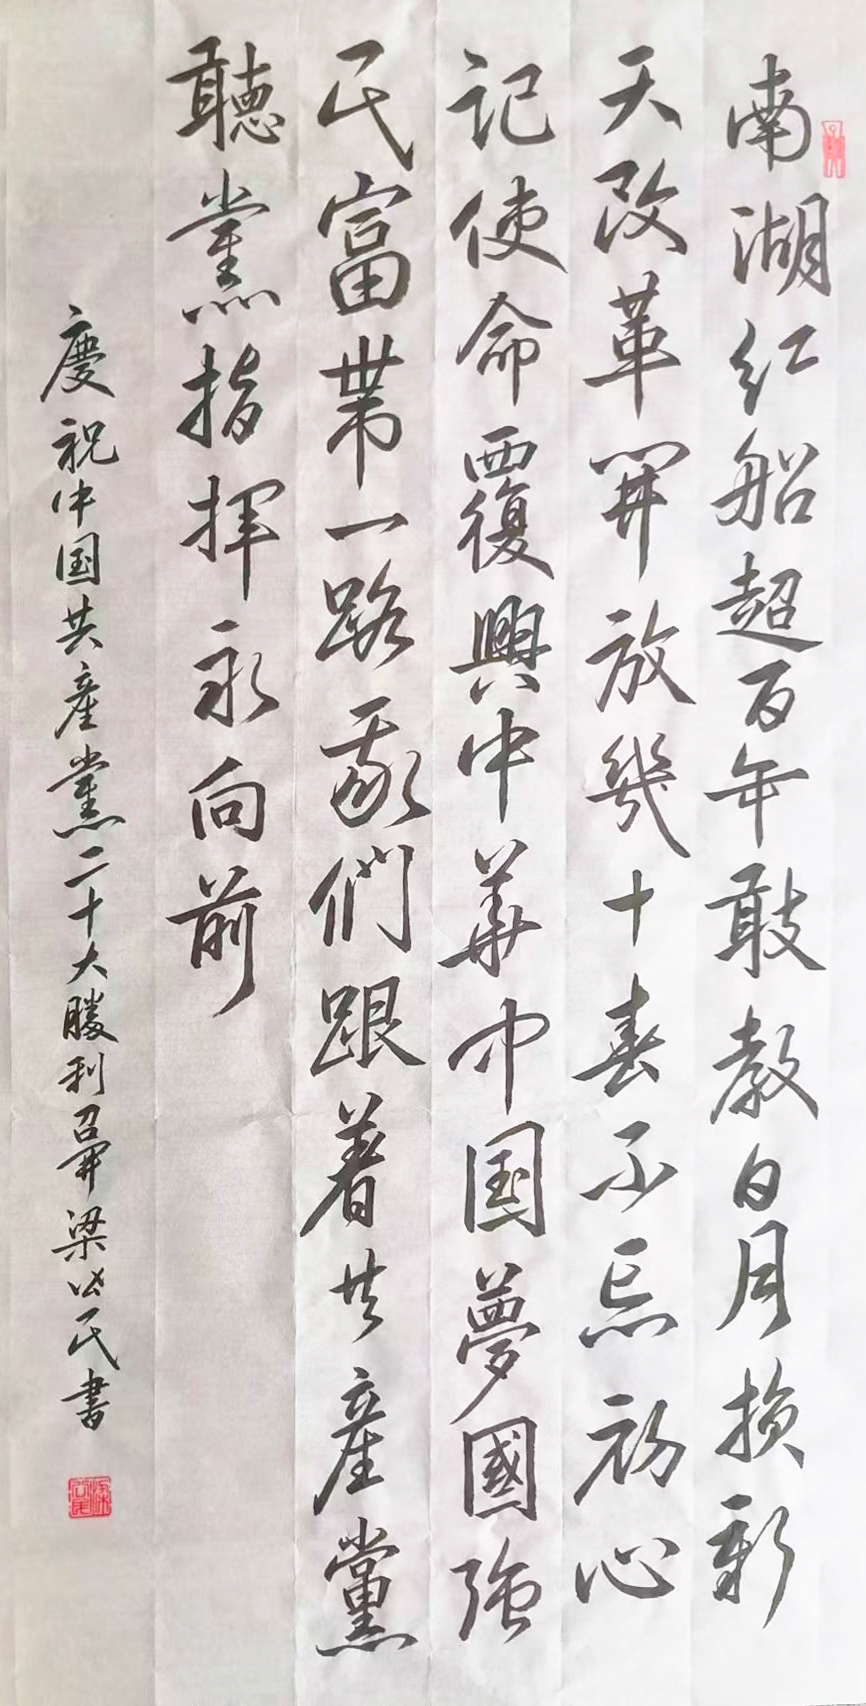 南湖红船超百年敢教日月换新
天改革開放幾十春不忘初心
记使命覆興中華中国夢國强
民富带一路我們跟着共產黨
聽黨指揮永向前
慶祝中国共產黨二十大勝利召開梁公民書